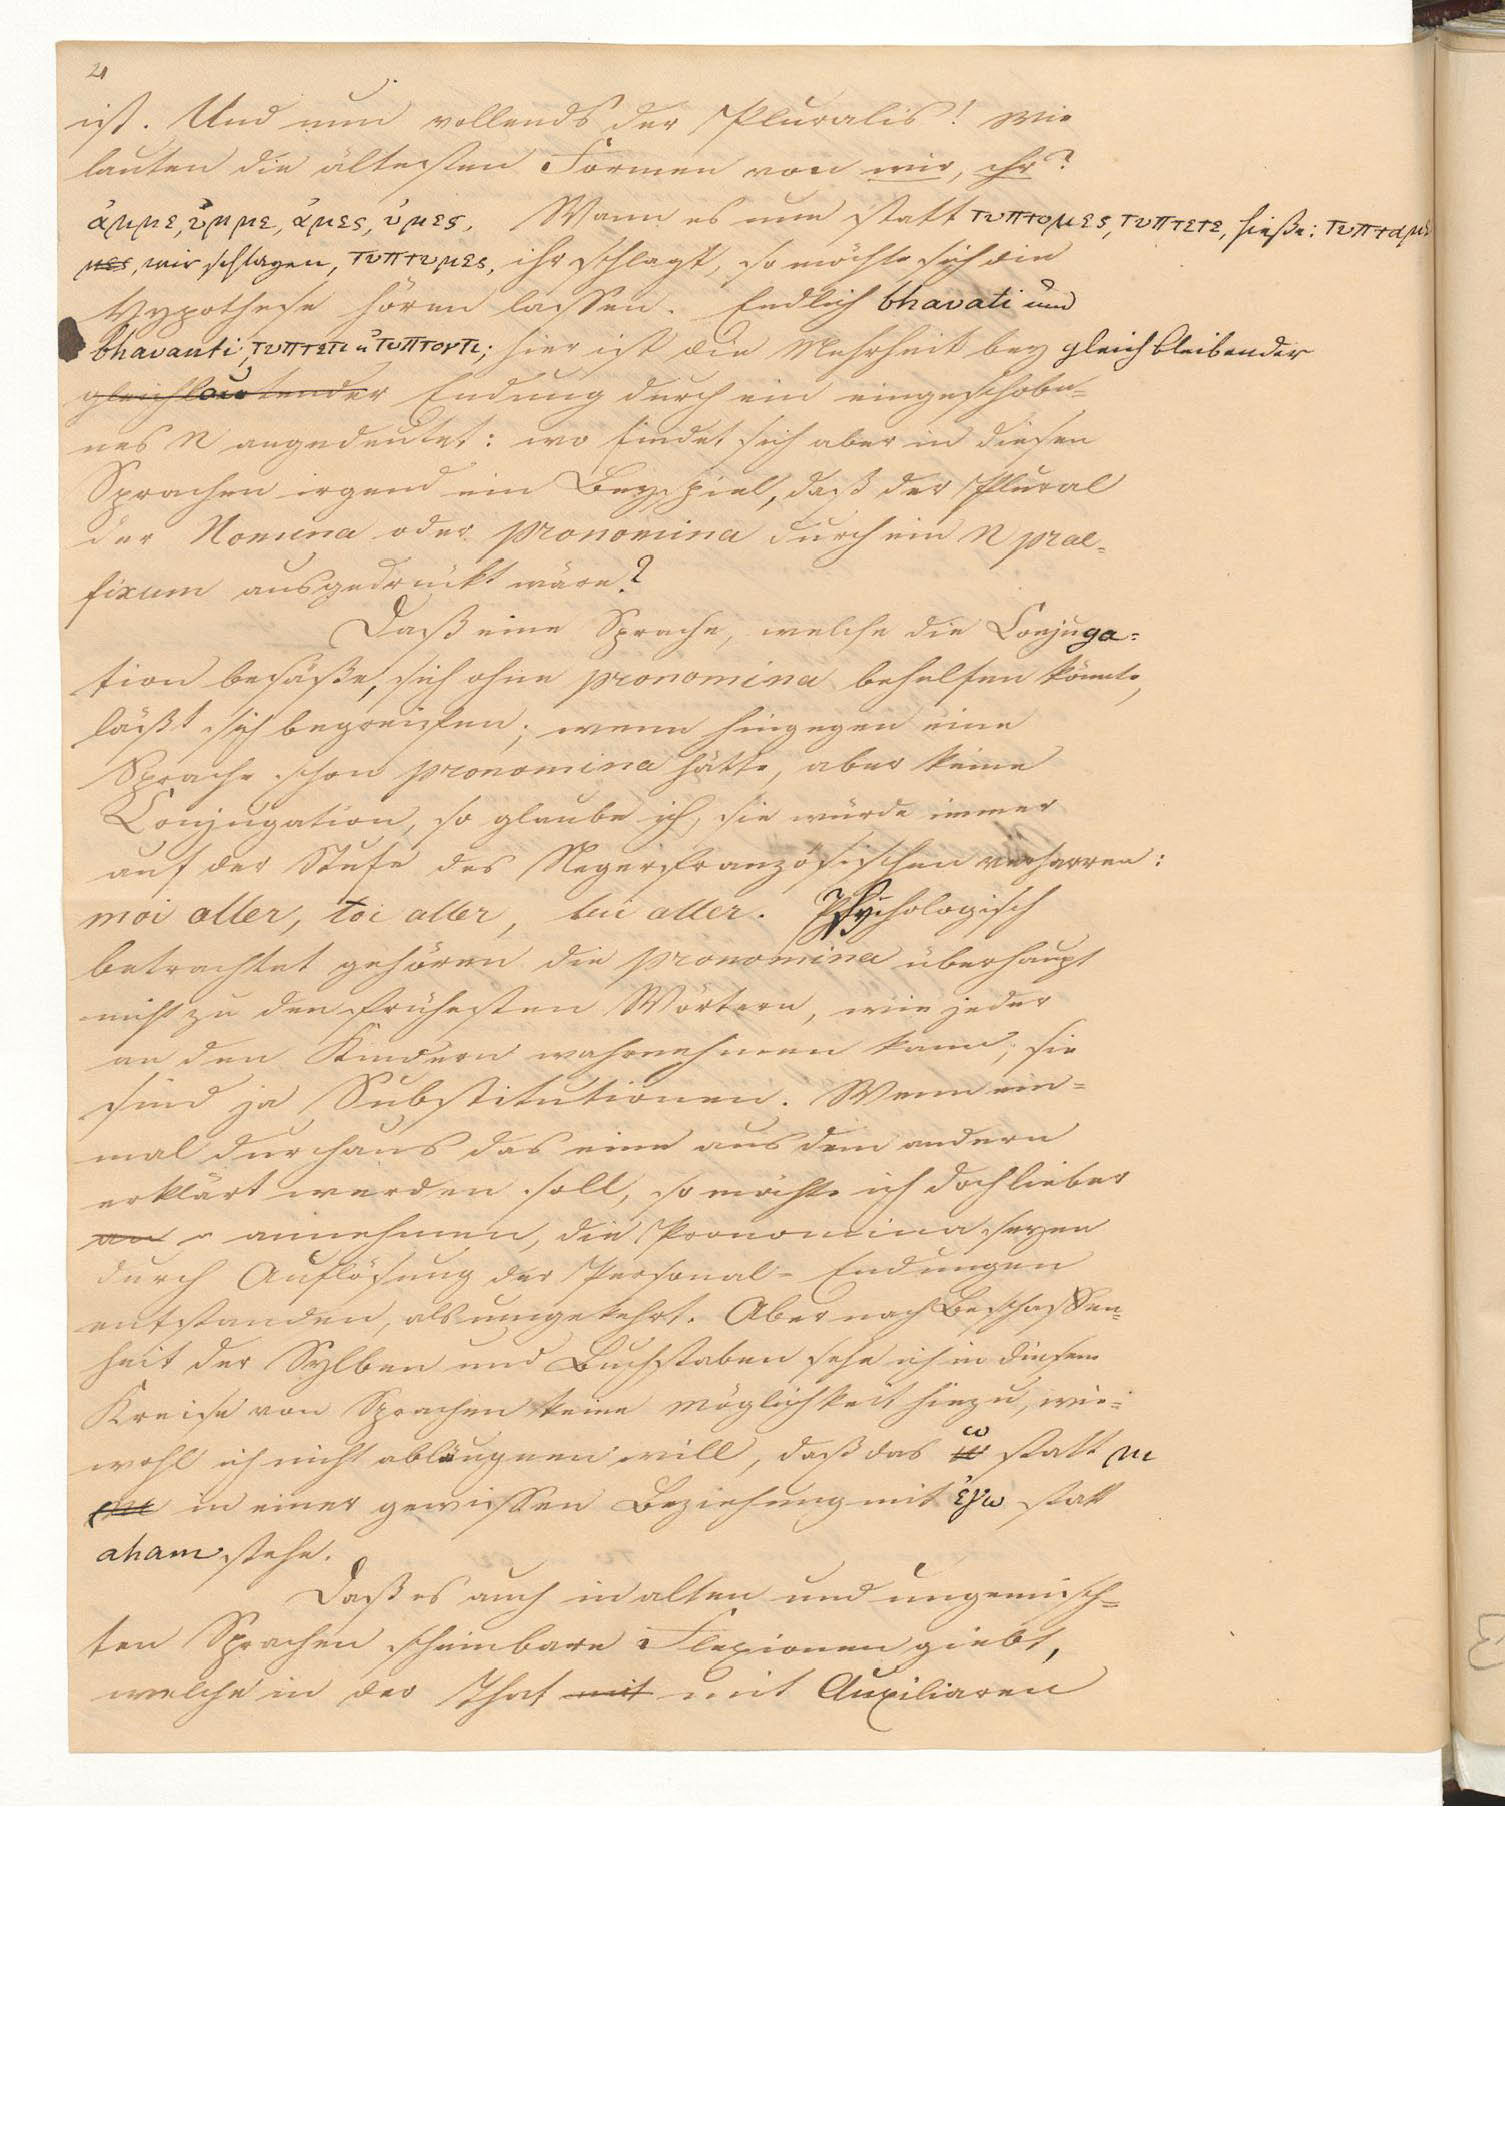 21
ist. Und nun vollends der Pluralis! Wie
lauten die ältesten Formen von wir, ihr?
ἀμμε, ὐμμε, ἀμες, ὑμες. Wann es nun statt τυπτομες, τυπτετε, hieße: τυπταμες
μες, wir schlagen, τυπτυμες, ihr schlagt, so möchte sich die
Hypothese hören lassen. Endlich bhavati und
bhavanti, τυπτετι u τυπτοντι; hier ist die Mehrheit bey gleich bleibender
gleichlautender Endung durch ein eingeschobe-
nes n angedeutet: wo findet sich aber in diesen
Sprachen irgend ein Beyspiel, daß der Plural
der Nomina oder pronomina durch ein n prae-
fixum ausgedrückt wäre?
Daß eine Sprache, welche die Conjuga-
tion besäße, sich ohne pronomina behelfen könnte,
läßt sich begreifen; wenn hingegen eine
Sprache schon pronomina hätte, aber keine
Conjugation, so glaube ich, sie würde immer
auf der Stufe des Negerfranzösischen verharren:
moi aller, toi aller, lui aller. Psychologisch
betrachtet gehören die pronomina überhaupt
nicht zu den frühesten Wörtern, wie jeder
an den Kindern wahrnehmen kann; sie
sind ja Substitutionen. Wenn ein-
mal durchaus das eine aus dem andern
erklärt werden soll, so möchte ich doch lieber
an annehmen, die Pronomina seyen
durch Auflösung der Personal-Endungen
entstanden, als umgekehrt. Aber nach Beschaffen-
heit der Sylben und Buchstaben sehe ich in diesem
Kreise von Sprachen keine Möglichkeit hiezu, wie-
wohl ich nicht abläugnen will, daß das ω statt m
in einer gewissen Beziehung mit ἐγω statt
aham stehe.
Daß es auch in alten und ungemisch-
ten Sprachen scheinbare Flexionen giebt,
welche in der That mit mit Auxiliaren